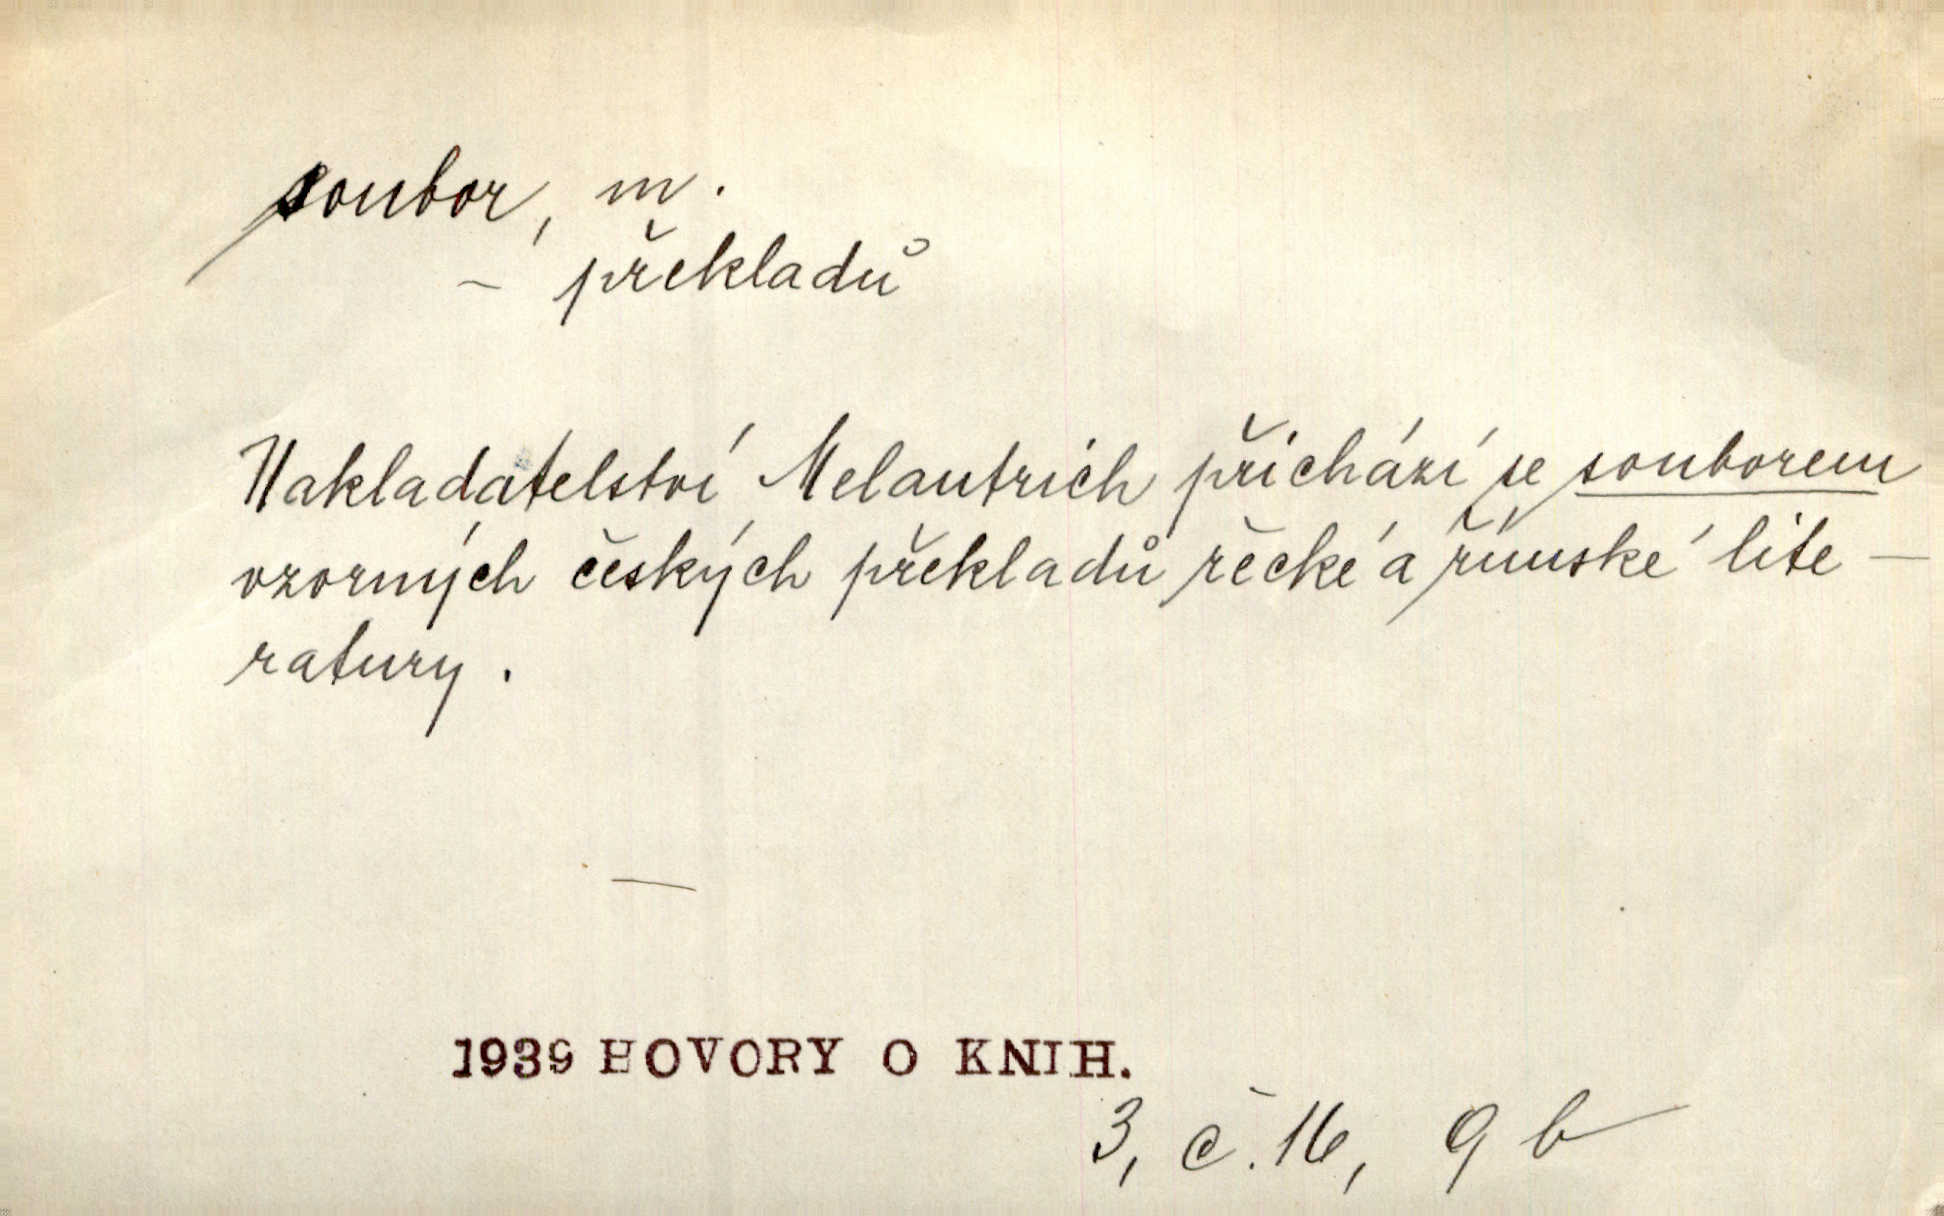 soubor, m.
– překladů
Nakladatelství Melantrich přichází se souborem
vzorných českých překladů řecké a římské lite-
ratury.
—
1939 HOVORY O KNIH.
3, č. 16, 9 b